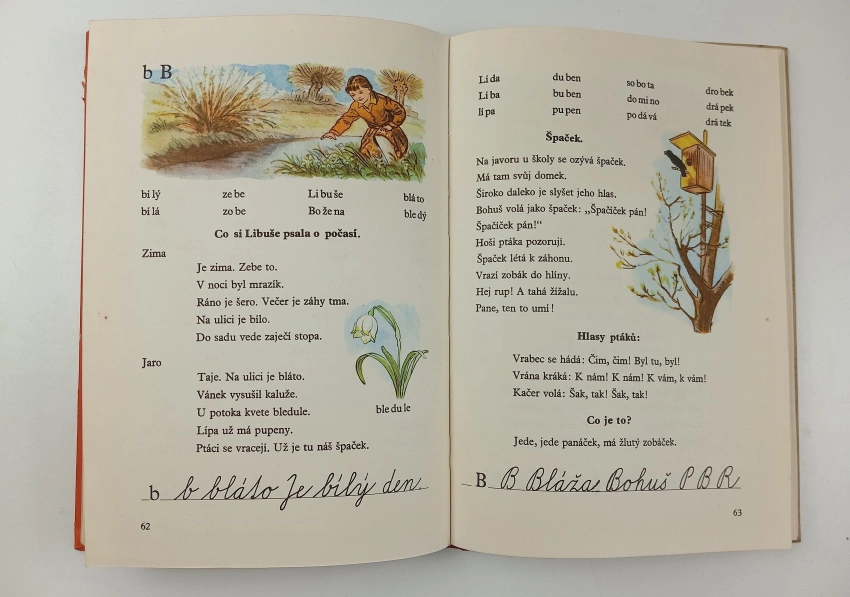 b B
bi lý ze be Li bu še blá to
bí lá zo be Bo že na ble dý
Co si Libuše psala o počasí.
Zima
Je zima. Zebe to.
V noci byl mrazík.
Ráno je šero. Večer je záhy tma.
Na ulici je bílo.
Do sadu vede zaječí stopa.
Jaro
Taje. Na ulici je bláto.
Vánek vysušil kaluže.
U potoka kvete bledule.
Lípa už má pupeny.
Ptáci se vracejí. Už je tu náš špaček.
ble du le
b b bláto Je bílý den.
62
Lí da du ben so bo ta dro bek
Lí ba bu ben do mi no drá pek
lí pa pu pen po dá vá drá tek
Špaček.
Na javoru u školy se ozývá špaček.
Má tam svůj domek.
Široko daleko je slyšet jeho hlas.
Bohuš volá jako špaček: „Špačíček pán!
Špačíček pán!“
Hoši ptáka pozorují.
Špaček létá k záhonu.
Vrazí zobák do hlíny.
Hej rup! A tahá žížalu.
Pane, ten to umí!
Hlasy ptáků:
Vrabec se hádá: Čim, čim! Byl tu, byl!
Vrána kráká: K nám! K nám! K vám, k vám!
Kačer volá: Šak, tak! Šak, tak!
Co je to?
Jede, jede panáček, má žlutý zobáček.
B B Bláža Bohuš P B R
63